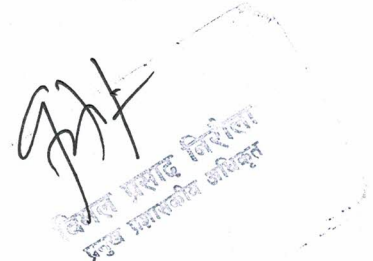 प्रसाद निरौला
प्रमुख प्रशासकीय अधिकृत